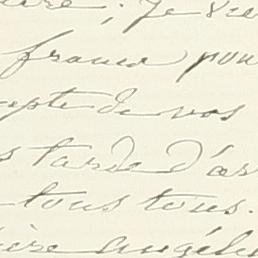 ; Je
franco pour
cepte de vos
s tarde d'ar
tous tous.
ière Angéli